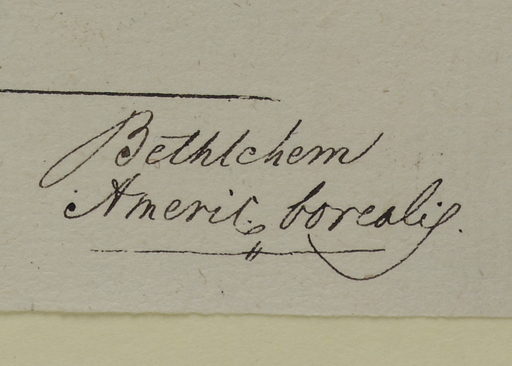 Bethlehem
Americ. borealis.